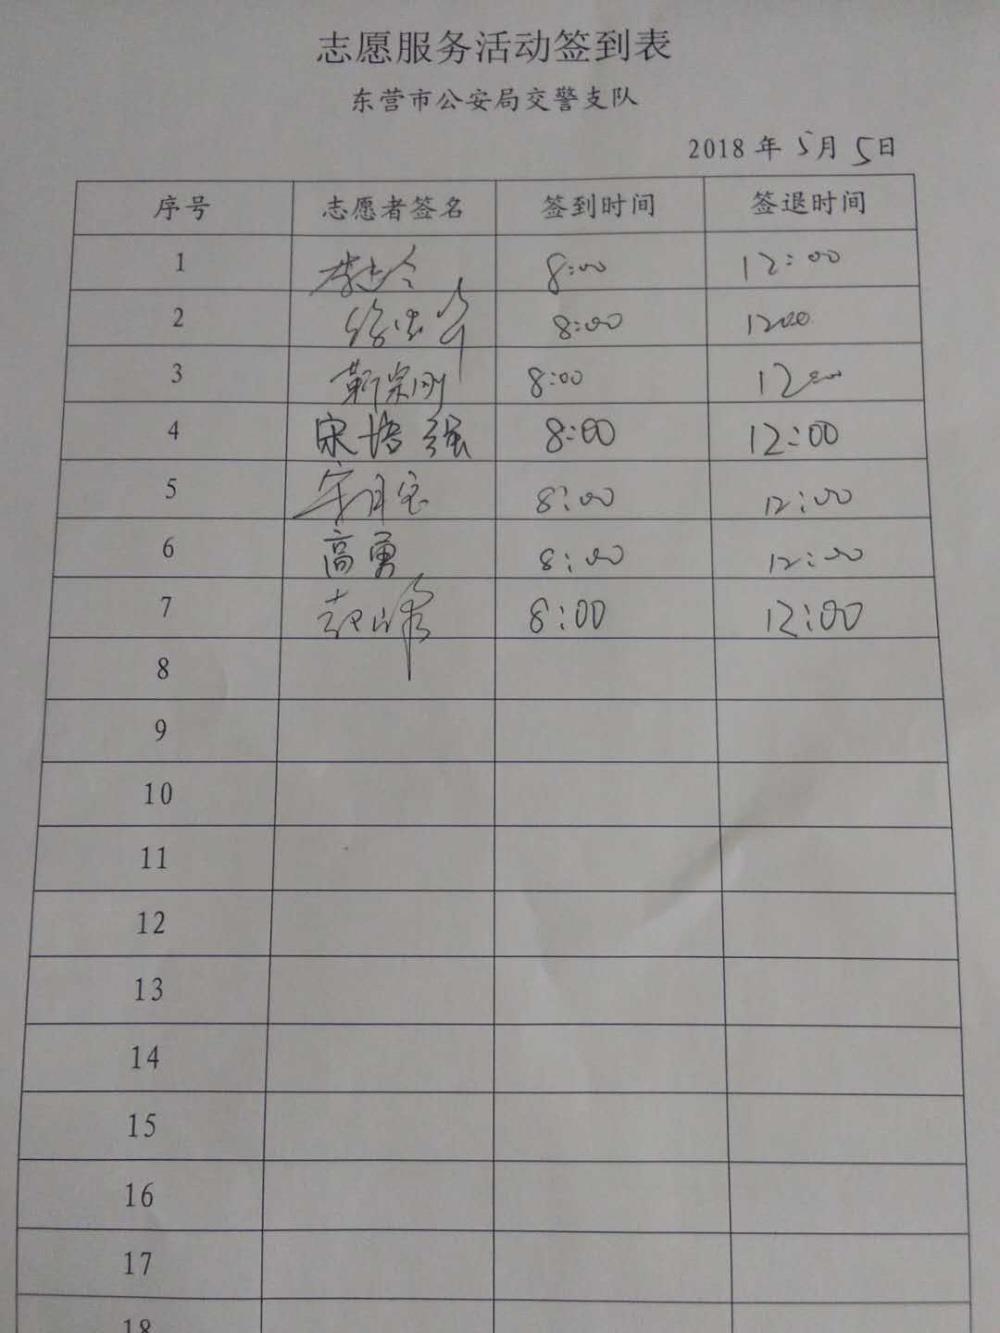 志愿服务活动签到表
东营市公安局交警支队
2018 年 5月 5日
序号 志愿者签名 签到时间 签退时间
1 8:00 12:00
2 8:00 1200
3 靳宗刚 8:00 12:00
4 宋培强 8:00 12:00
5 8:00 12:00
6 高勇 8:00 12:00
7 8:00 12:00
8
9
10
11
12
13
14
15
16
17
18